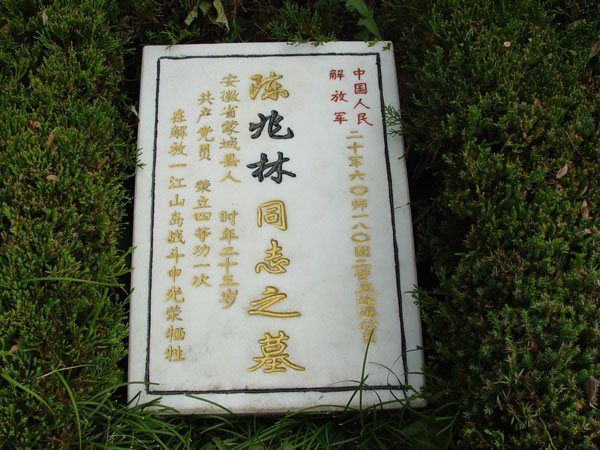 中国人民
解放军
二十军六〇师一八〇团二
陈兆林同志之墓
安徽省蒙城县人 时年二十五岁
共产党员 荣立四等功一次
在解放一江山岛战斗中光荣牺牲